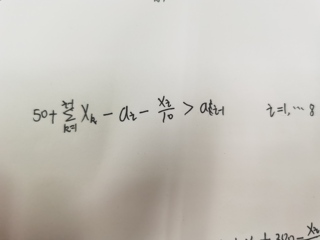 50+ \sum_{k=1}^{t-1} X_k - a_t - \frac{X_t}{10} > a_{t-1} t=1,… 8